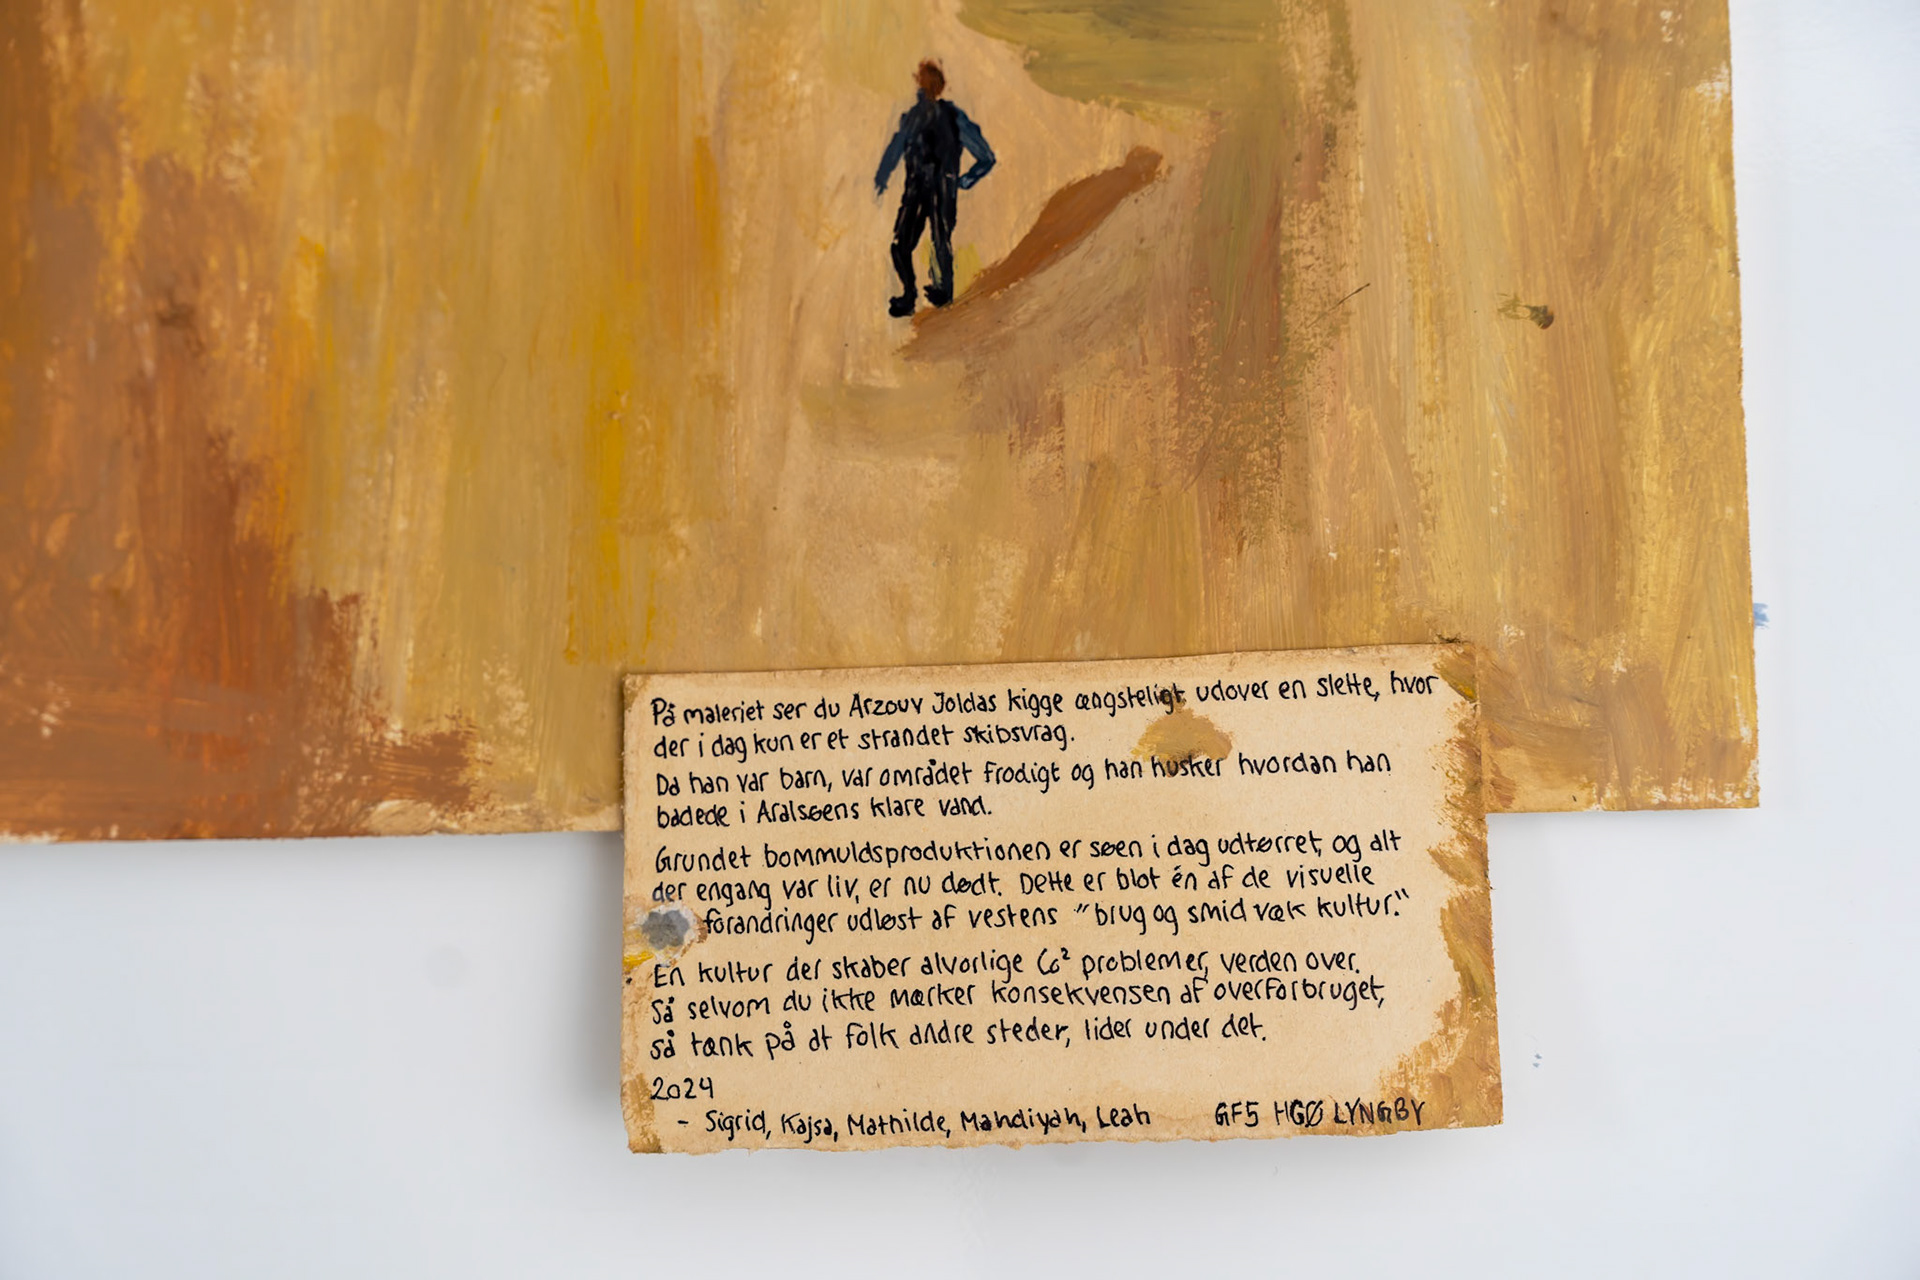 På maleriet ser du Arzouv Joldas kigge ængsteligt udover en slette, hvor
der i dag kun er et strandet skibsvrag.
Da han var barn, var området frodigt og han husker hvordan han
badede i Aralsøens klare vand.
Grundet bommuldsproduktionen er søen i dag udtørret, og alt
der engang var liv, er nu dødt. Dette er blot én af de visuelle
forandringer udløst af vestens "brug og smid væk kultur."
En kultur der skaber alvorlige Co² problemer, verden over.
Så selvom du ikke mærker konsekvensen af overforbruget,
så tænk på at folk andre steder, lider under det.
2024
- Sigrid, Kajsa, Mathilde, Mahdiyah, Leah GF5 HGØ LYNGBY